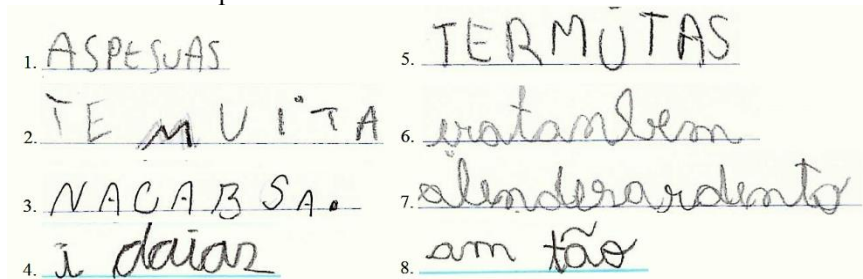 1. ASPESUAS
2. TE MUITA
3. NACABSA.
4. i daiaz
5. TERMUTAS
6. eratanbem
7. alenderardento
8. am tão